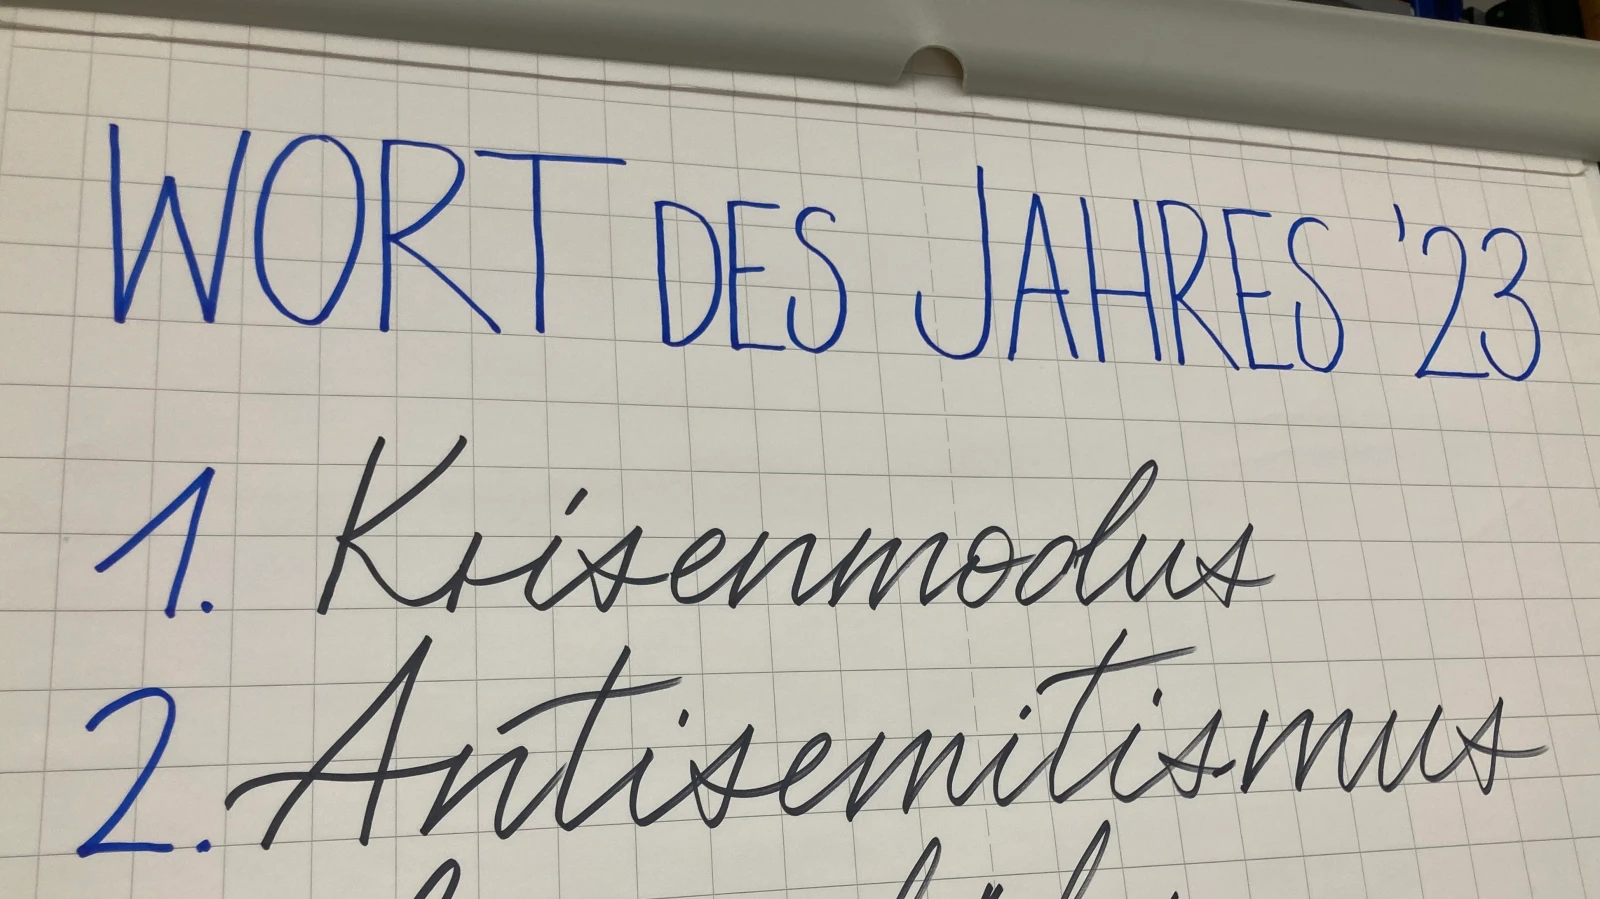 WORT DES JAHRES '23
1. Krisenmodus
2. Antisemitismus